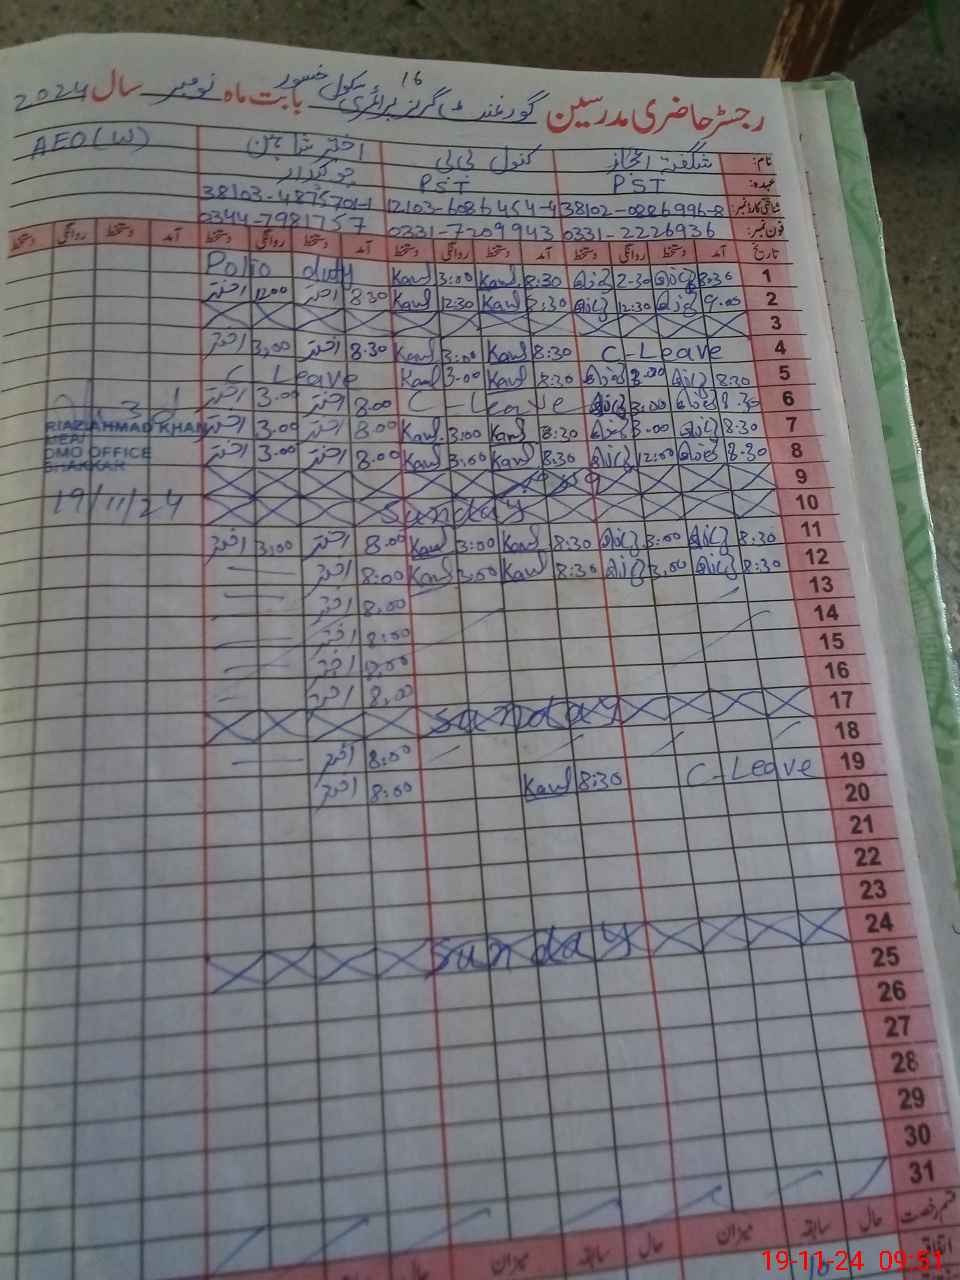 16
رجسٹر حاضری مدرسین گورنمنٹ گرلز پرائمری سکول بابت ماہ نومبر سال 2024
نام: شگفتہ اعجاز کنول بی بی اختر AEO (W)
عہدہ: PST PST چوکیدار
شناختی کارڈ نمبر: 38102-0226996-8 12103-6086454-4 38103-4875701-1
فون نمبر: 0331-2226936 0331-7209943 0344-7981757
تاریخ آمد دستخط روانگی دستخط آمد دستخط روانگی دستخط آمد دستخط روانگی دستخط آمد دستخط روانگی دستخط
1 8:30 2-30 8:30 Kawl 3:00 Kawl Polio duty
2 9.00 12:30 8:30 Kawl 12:30 Kawl 8:30 اختر 12:00 اختر
3
4 C-Leave 8:30 Kawl 3:00 Kawl 8.30 اختر 3,00 اختر
5 8:30 3:00 8:30 Kawl 3.00 Kawl C Leave
6 8.30 3:00 C-Leave 8.00 اختر 3.00 اختر
7 8:30 3.00 8:30 Kawl 3:00 Kawl 8.00 اختر 3.00 اختر
8 8:30 12:00 8:30 Kawl 3:00 Kawl 8.00 اختر 3.00 اختر
RIAZ AHMAD KHAN
MEA
DMO OFFICE
BHAKKAR
19/11/24
9
10 Sunday
11 8:30 3:00 8:30 Kawl 3:00 Kawl 8.00 اختر 3,00 اختر
12 8:30 3,00 8:30 Kawl 3,00 Kawl 8:00 اختر
13 8,00 اختر
14 8:00 اختر
15 8:00 اختر
16 8,00 اختر
17 Sunday
18 8:00 اختر
19 C-Leave 8:30 Kawl 8:00 اختر
20
21
22
23
24 Sunday
25
26
27
28
29
30
31
قسم رخصت حال سابقہ میزان حال سابقہ میزان حال سابقہ میزان
اتفاقیہ
19-11-24 09:51